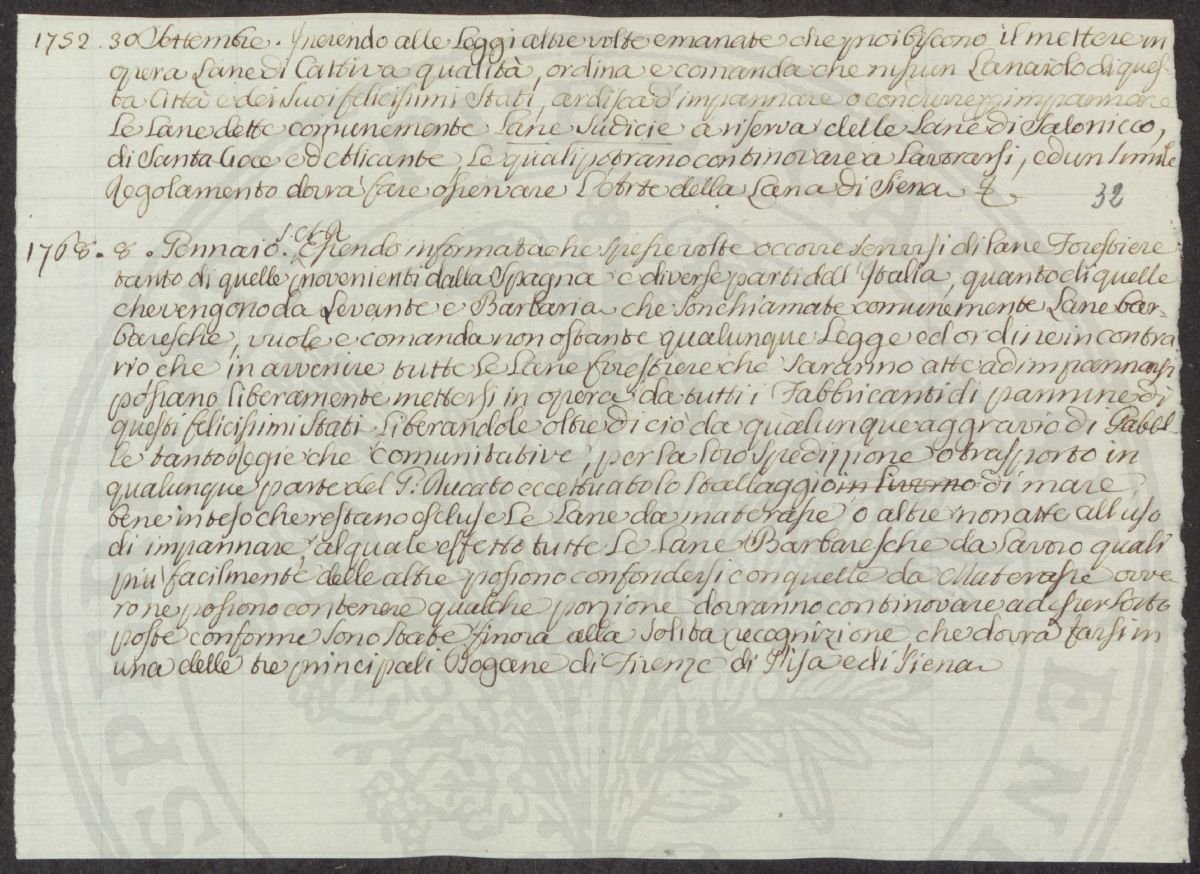 1752. 30 Settembre. Inerendo alle Leggi altre volte emanate che proibiscono il mettere in
opera Lane di Cattiva qualità, ordina e comanda che nissun Lanaiolo di ques-
ta Città e dei suoi felicissimi Stati, ardisca d'impannare o condurre p impannare
Le Lane dette comunemente Lane Sudicie a riserva delle Lane di Salonicco,
di Santa Croce e d'Alicante, Le quali potrano continovare a Lavorarsi, ed un simile
regolamento dovrà fare osservare L'Arte della Lana di Siena
32
1768. 8. Gennaio. S.C.R.A. Essendo informata che spesse volte occorre servirsi di lane Forestiere
tanto di quelle provenienti dalla Spagna e diverse parti dall'Italia, quanto di quelle
che vengono da Levante e Barbaria che son chiamate comunemente Lane bar-
baresche, vuole e comanda non ostante qualunque Legge ed ordine in contra
rio che in avvenire tutte Le Lane forestiere che Saranno atte ad impannarsi
possano liberamente mettersi in opera da tutti i Fabbricanti di pannine di
questi felicissimi Stati Liberandole oltre di ciò da qualunque aggravio di Gabel-
le tanto regie che comunitative, per la loro spedizione o trasporto in
qualunque parte del G. Ducato eccettuato lo Stallaggio in Livorno di mare,
bene inteso che restano escluse Le Lane da materasse o altre non atte all'uso
di impannare, al quale effetto tutte Le Lane Barbaresche da Lavoro quali
più facilmente delle altre possono confondersi con quelle da Materasse ovve-
ro ne possono contenere qualche porzione dovranno continovare ad esser sotto
poste conforme sono state finora alla solita recognizione che dovrà farsi in
una delle tre principali Dogane di Firenze di Pisa e di Siena